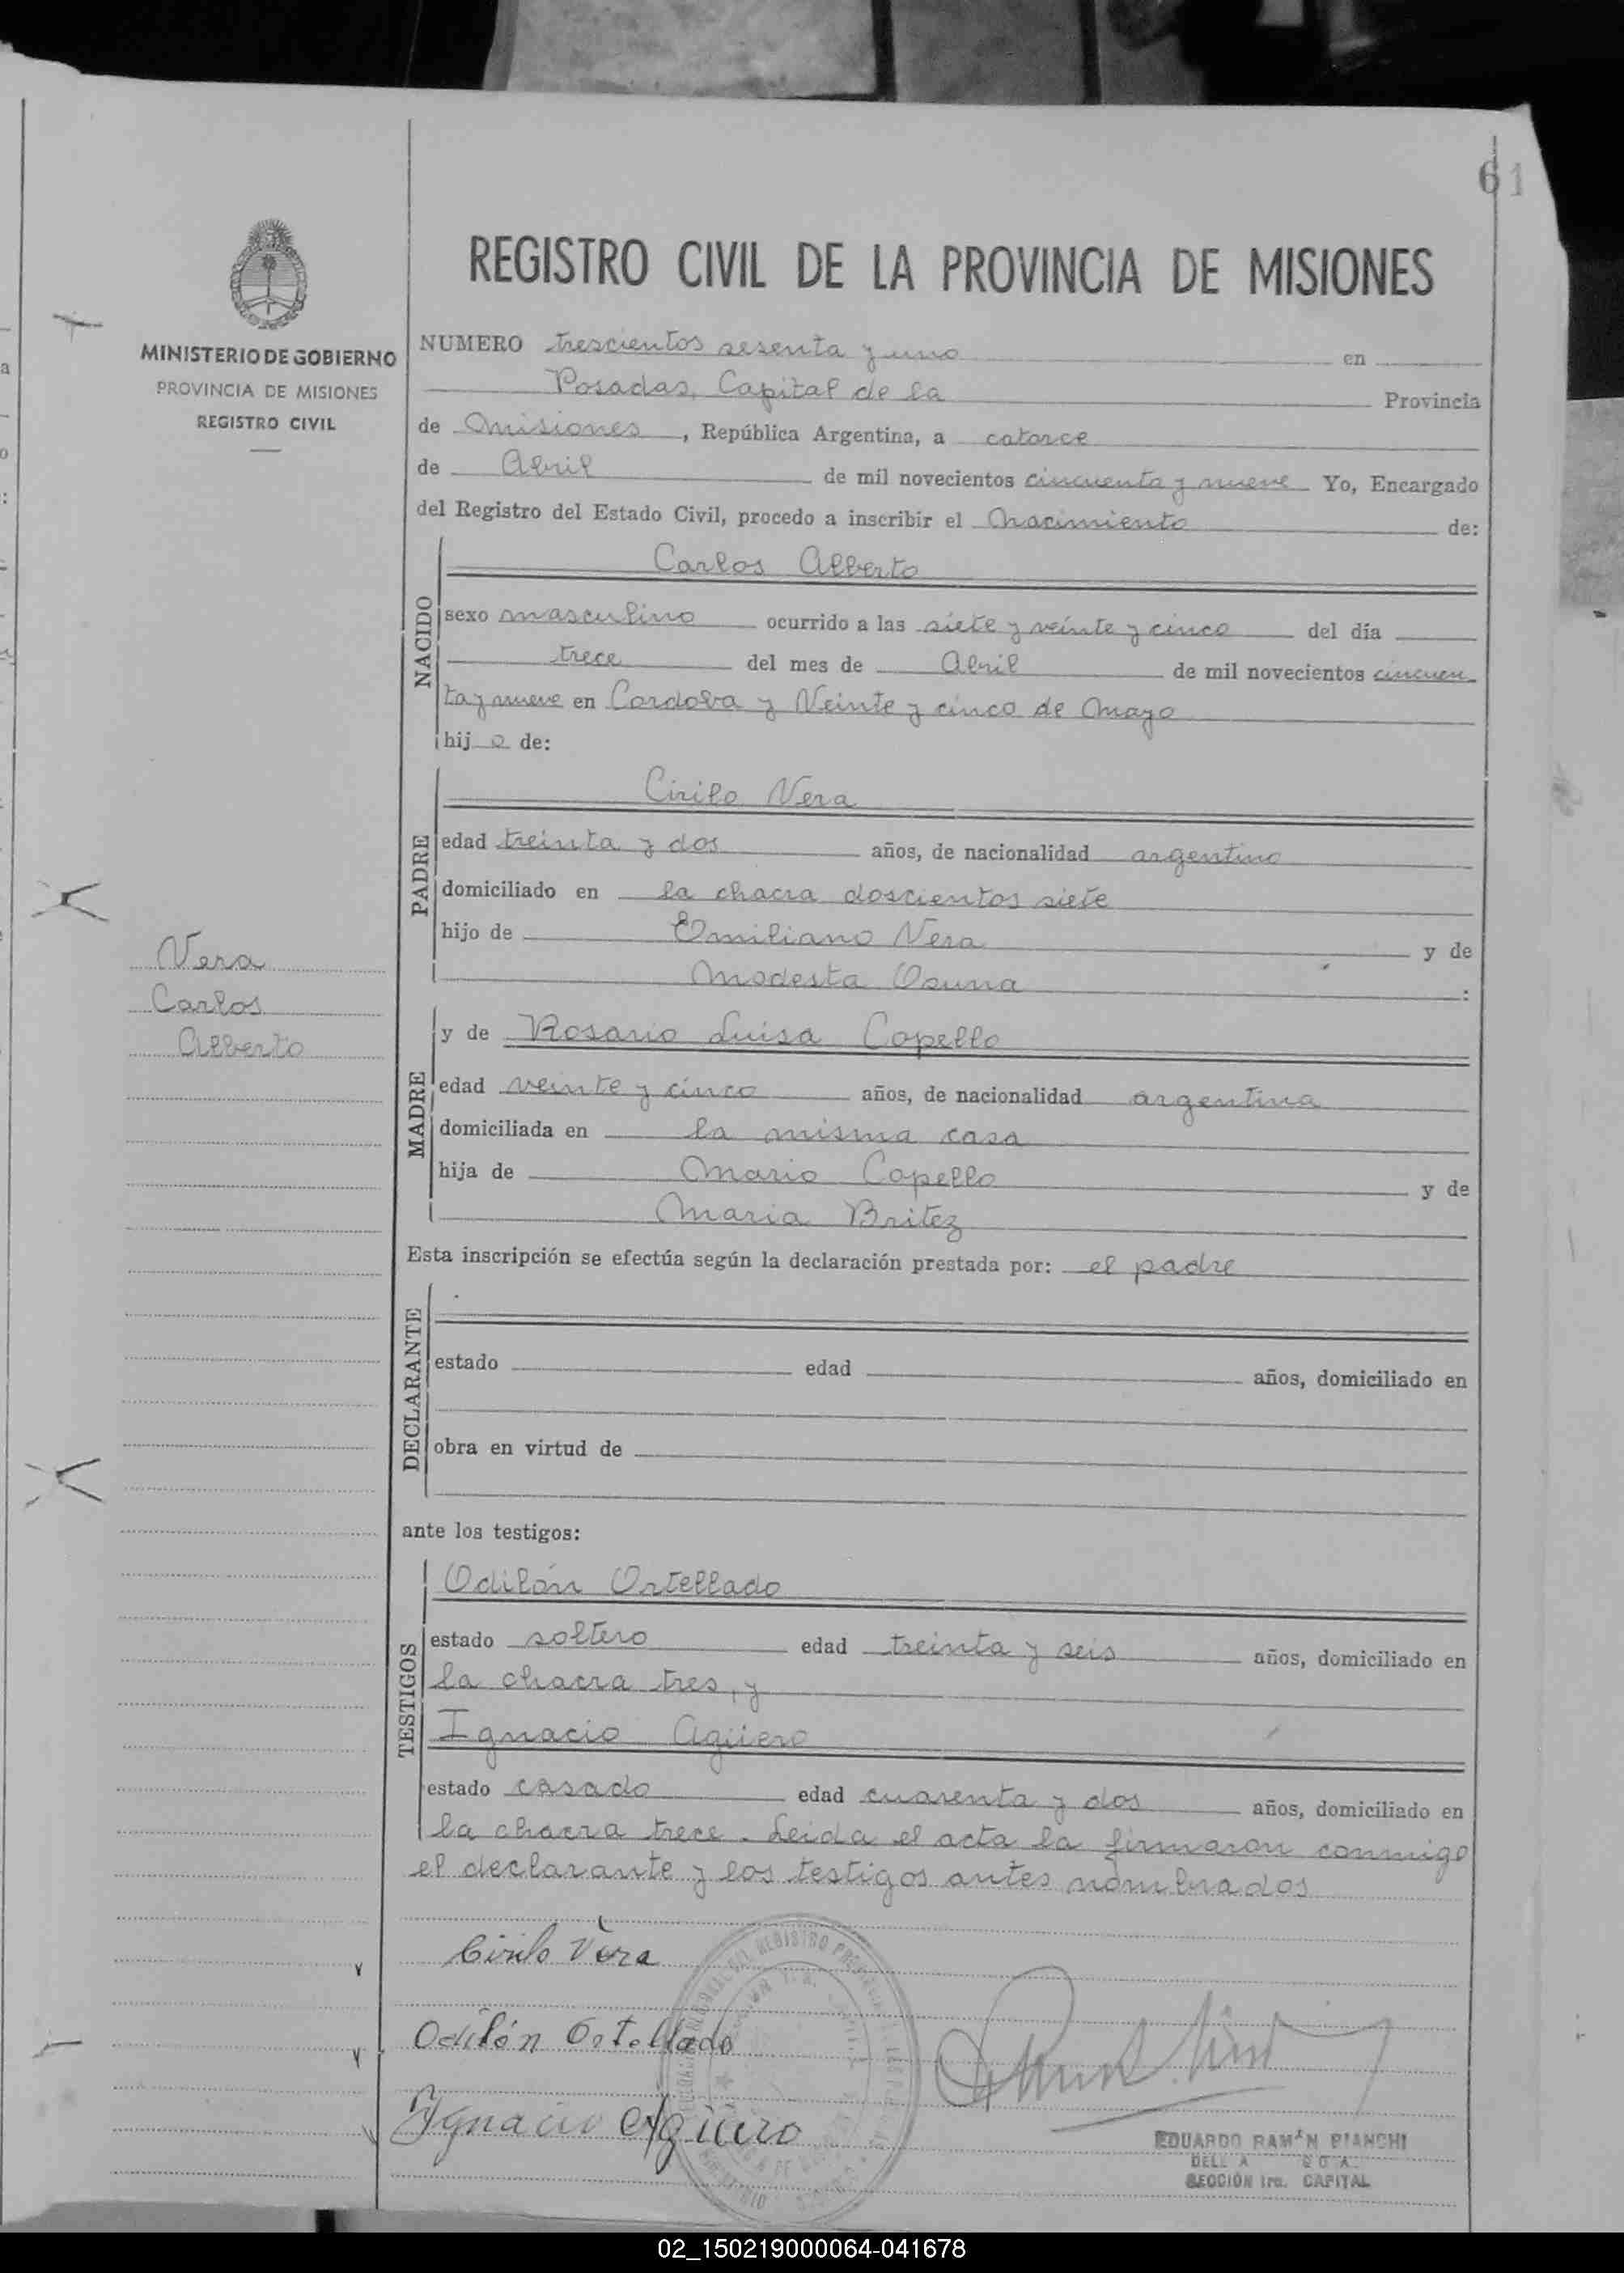 61
REGISTRO CIVIL DE LA PROVINCIA DE MISIONES
MINISTERIO DE GOBIERNO
PROVINCIA DE MISIONES
REGISTRO CIVIL
NUMERO trescientos sesenta y uno en
Posadas, Capital de la Provincia
de Misiones, República Argentina, a catorce
de Abril de mil novecientos cincuenta y nueve Yo, Encargado
del Registro del Estado Civil, procedo a inscribir el Nacimiento de:
NACIDO
Carlos Alberto
sexo masculino ocurrido a las siete y veinte y cinco del día
trece del mes de Abril de mil novecientos cincuen
ta y nueve en Cordova y Veinte y cinco de Mayo
hijo de:
PADRE
Cirilo Vera
edad treinta y dos años, de nacionalidad argentino
domiciliado en la chacra doscientos siete
hijo de Emiliano Vera y de
Modesta Osuna :
Vera
Carlos
Alberto
MADRE
y de Rosario Luisa Copello
edad veinte y cinco años, de nacionalidad argentina
domiciliada en la misma casa
hija de Mario Copello y de
Maria Britez
Esta inscripción se efectúa según la declaración prestada por: el padre
DECLARANTE
estado edad años, domiciliado en
obra en virtud de
ante los testigos:
TESTIGOS
Odilón Ortellado
estado soltero edad treinta y seis años, domiciliado en
la chacra tres, y
Ignacio Agüero
estado casado edad cuarenta y dos años, domiciliado en
la chacra trece. Leida el acta la firmaron conmigo
el declarante y los testigos antes nombrados
Cirilo Vera
Odilón Ortellado
Ignacio Agüero
EDUARDO RAMON BIANCHI
SECCIÓN 1ra. CAPITAL
02_150219000064-041678